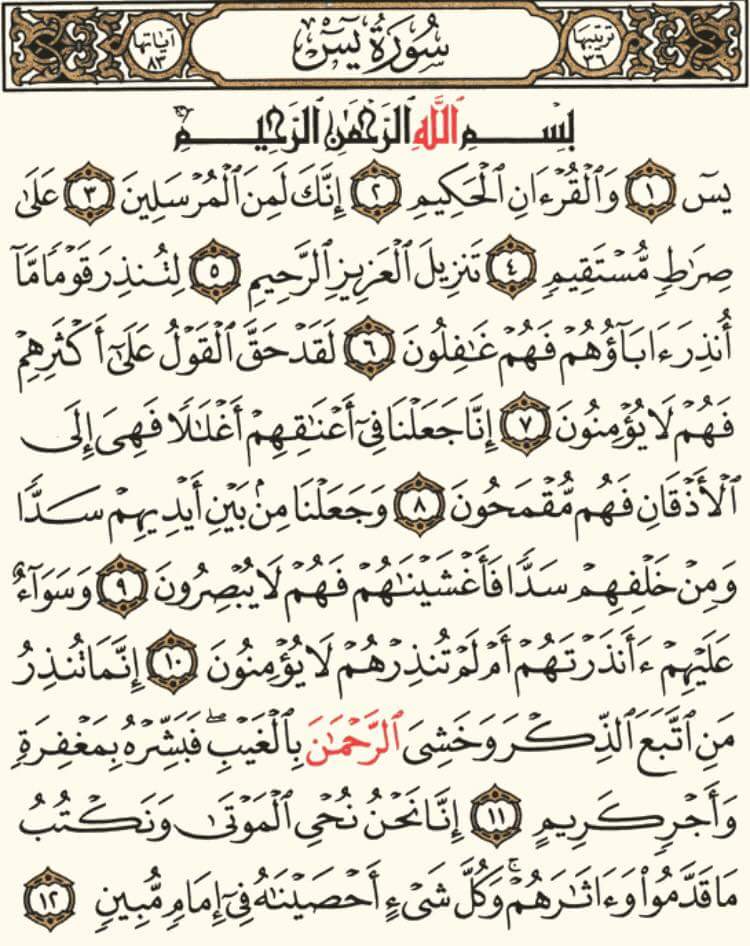 ترتيبها ٣٦ سُورَةُ يسٓ آياتها ٨٣
بِسْمِ ٱللَّهِ ٱلرَّحْمَٰنِ ٱلرَّحِيمِ
يسٓ ١ وَٱلْقُرْءَانِ ٱلْحَكِيمِ ٢ إِنَّكَ لَمِنَ ٱلْمُرْسَلِينَ ٣ عَلَىٰ
صِرَٰطٍ مُّسْتَقِيمٍ ٤ تَنزِيلَ ٱلْعَزِيزِ ٱلرَّحِيمِ ٥ لِتُنذِرَ قَوْمًا مَّآ
أُنذِرَ ءَابَآؤُهُمْ فَهُمْ غَٰفِلُونَ ٦ لَقَدْ حَقَّ ٱلْقَوْلُ عَلَىٰٓ أَكْثَرِهِمْ
فَهُمْ لَا يُؤْمِنُونَ ٧ إِنَّا جَعَلْنَا فِىٓ أَعْنَٰقِهِمْ أَغْلَٰلًا فَهِىَ إِلَى
ٱلْأَذْقَانِ فَهُم مُّقْمَحُونَ ٨ وَجَعَلْنَا مِنۢ بَيْنِ أَيْدِيهِمْ سَدًّا
وَمِنْ خَلْفِهِمْ سَدًّا فَأَغْشَيْنَٰهُمْ فَهُمْ لَا يُبْصِرُونَ ٩ وَسَوَآءٌ
عَلَيْهِمْ ءَأَنذَرْتَهُمْ أَمْ لَمْ تُنذِرْهُمْ لَا يُؤْمِنُونَ ١٠ إِنَّمَا تُنذِرُ
مَنِ ٱتَّبَعَ ٱلذِّكْرَ وَخَشِىَ ٱلرَّحْمَٰنَ بِٱلْغَيْبِ ۖ فَبَشِّرْهُ بِمَغْفِرَةٍ
وَأَجْرٍ كَرِيمٍ ١١ إِنَّا نَحْنُ نُحْىِ ٱلْمَوْتَىٰ وَنَكْتُبُ
مَا قَدَّمُوا۟ وَءَاثَٰرَهُمْ ۚ وَكُلَّ شَىْءٍ أَحْصَيْنَٰهُ فِىٓ إِمَامٍ مُّبِينٍ ١٢